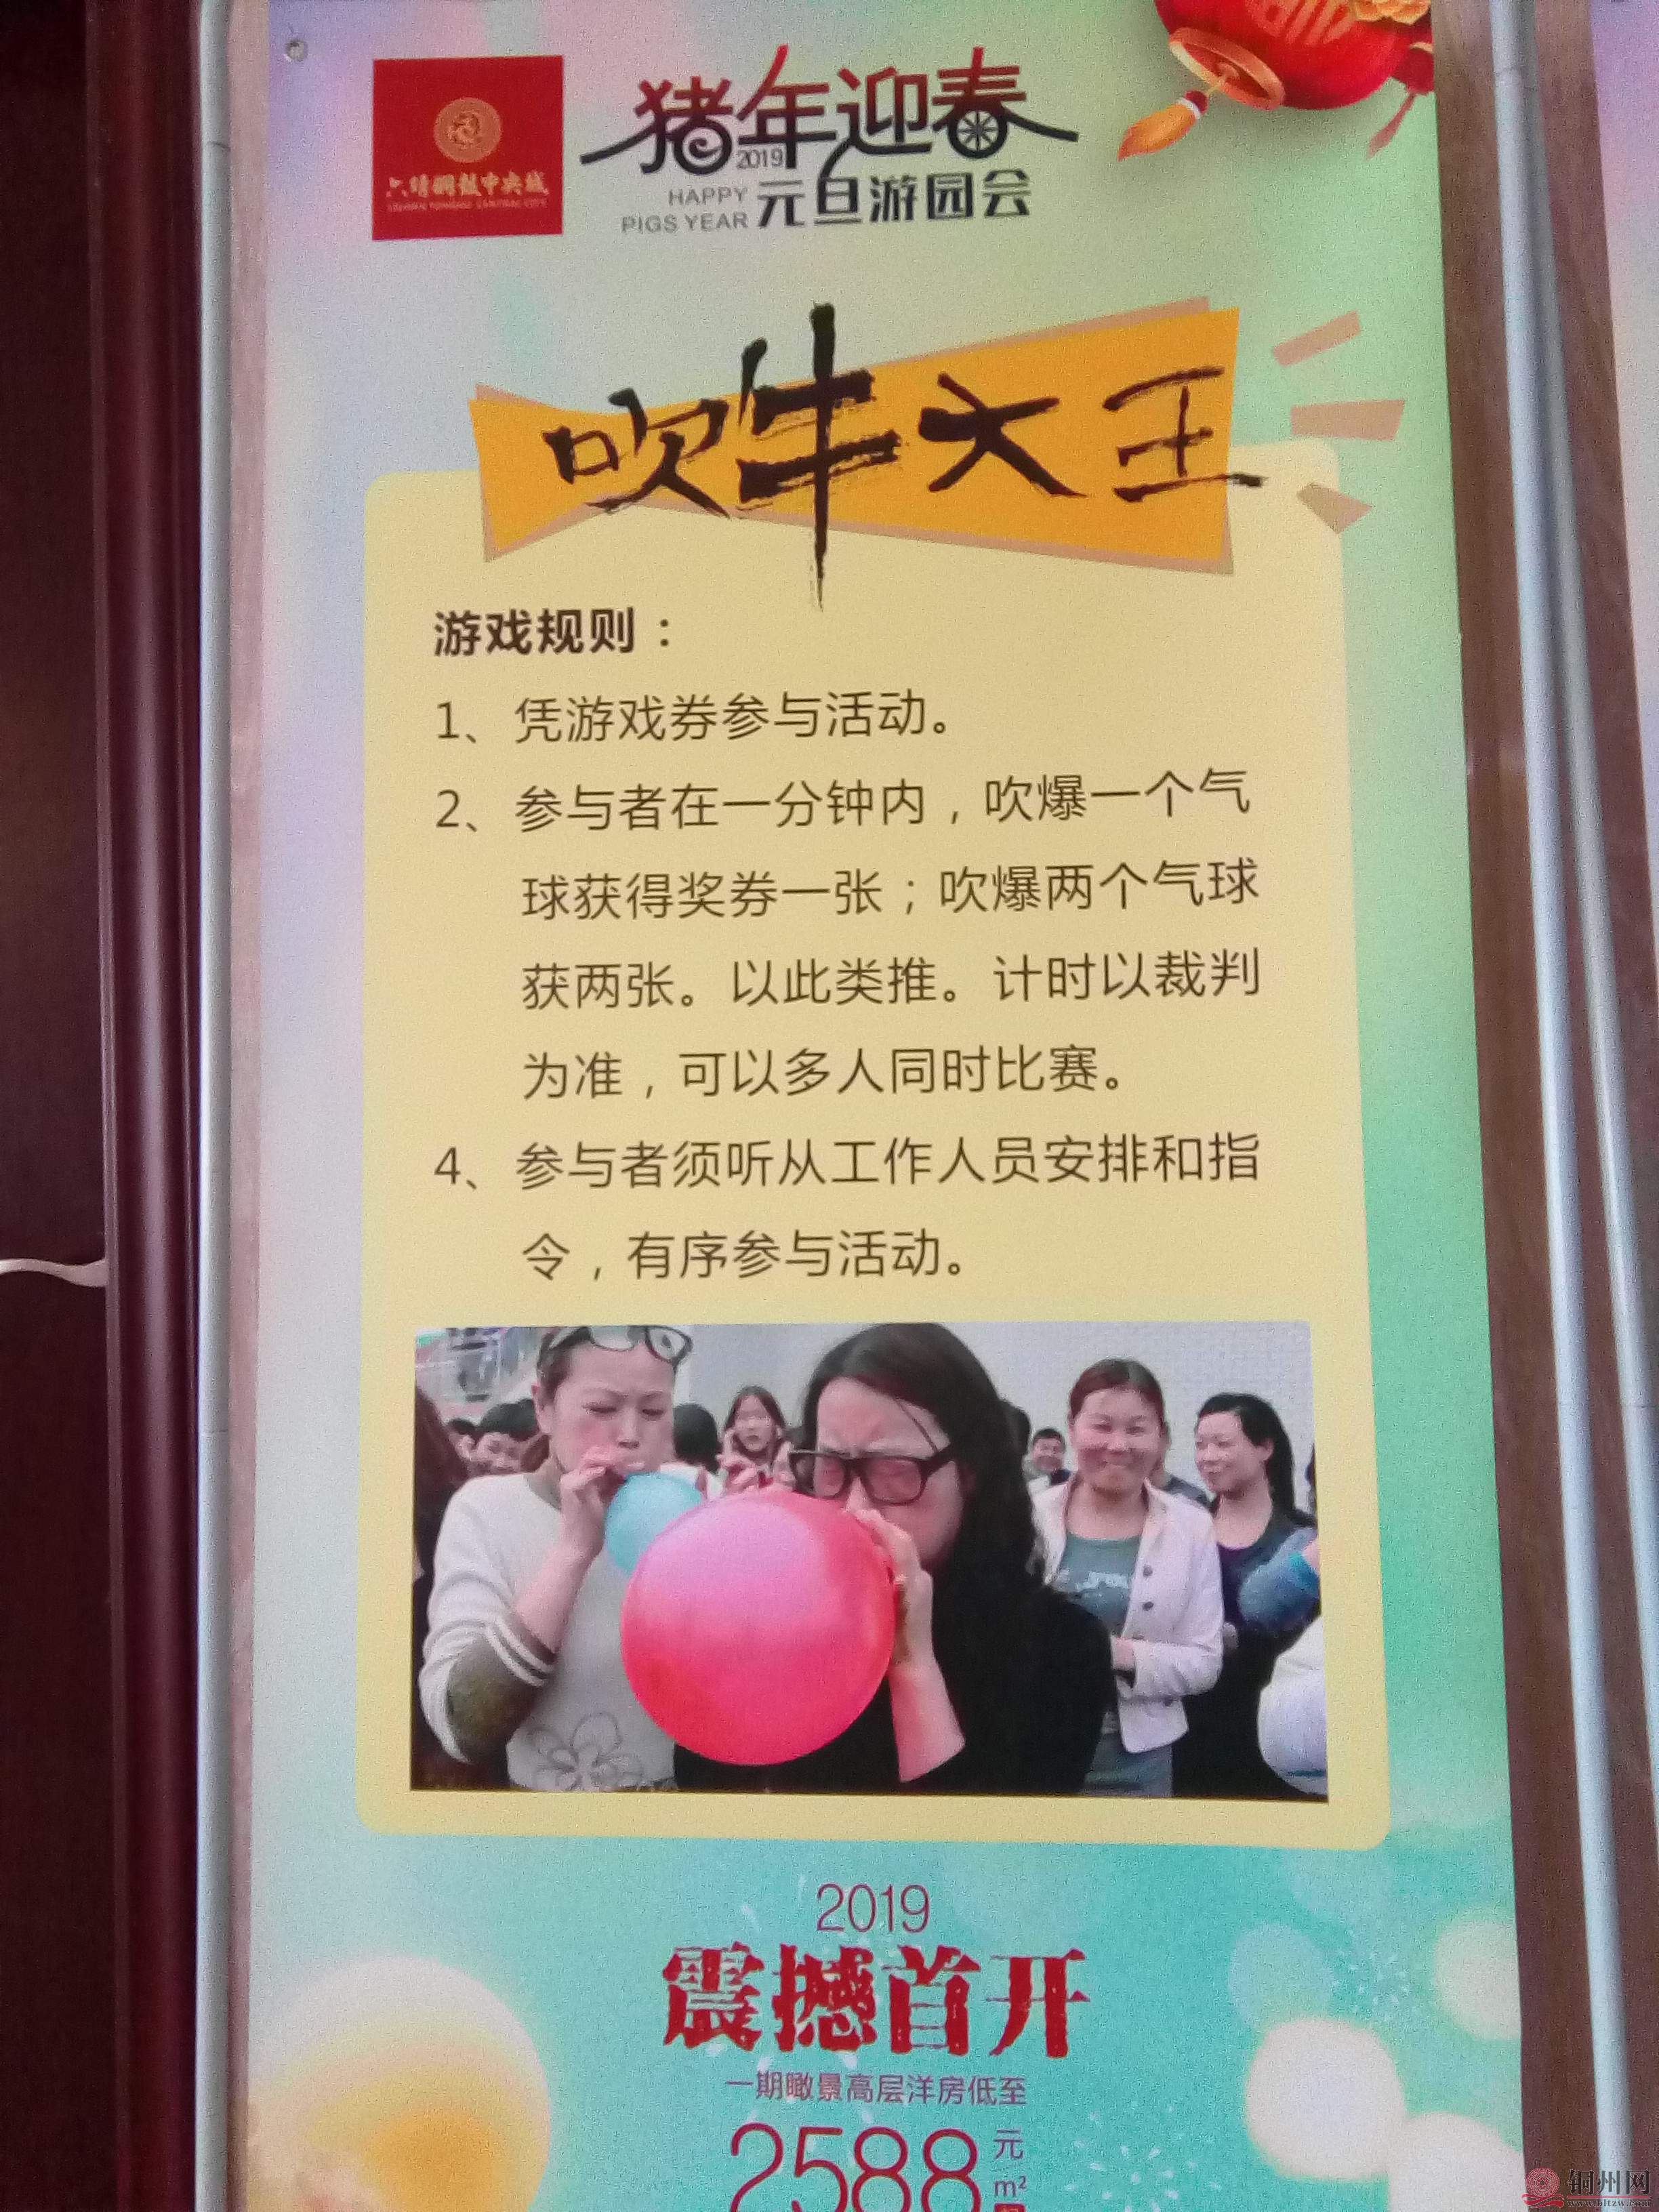 六靖铜鼓中央城
猪年迎春
2019
HAPPY
PIGS YEAR
元旦游园会
吹牛大王
游戏规则：
1、凭游戏券参与活动。
2、参与者在一分钟内，吹爆一个气
球获得奖券一张；吹爆两个气球
获两张。以此类推。计时以裁判
为准，可以多人同时比赛。
4、参与者须听从工作人员安排和指
令，有序参与活动。
2019
震撼首开
一期瞰景高层洋房低至
2588元
m²
铜州网
www.bltzw.com